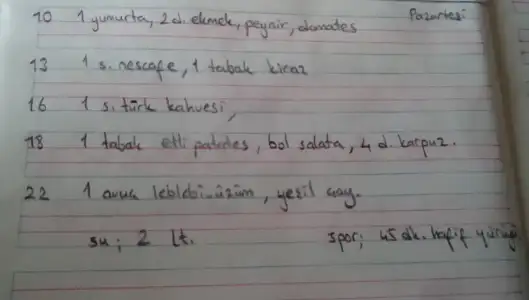 10 1 yumurta, 2 d. ekmek, peynir, domates Pazartesi
13 1 s. nescafe, 1 tabak kiraz
16 1 s. türk kahvesi,
18 1 tabak etli patates, bol salata, 4 d. karpuz.
22 1 avuç leblebi-üzüm, yeşil çay.
su; 2 lt. spor; 45 dk. hafif yürüyüş